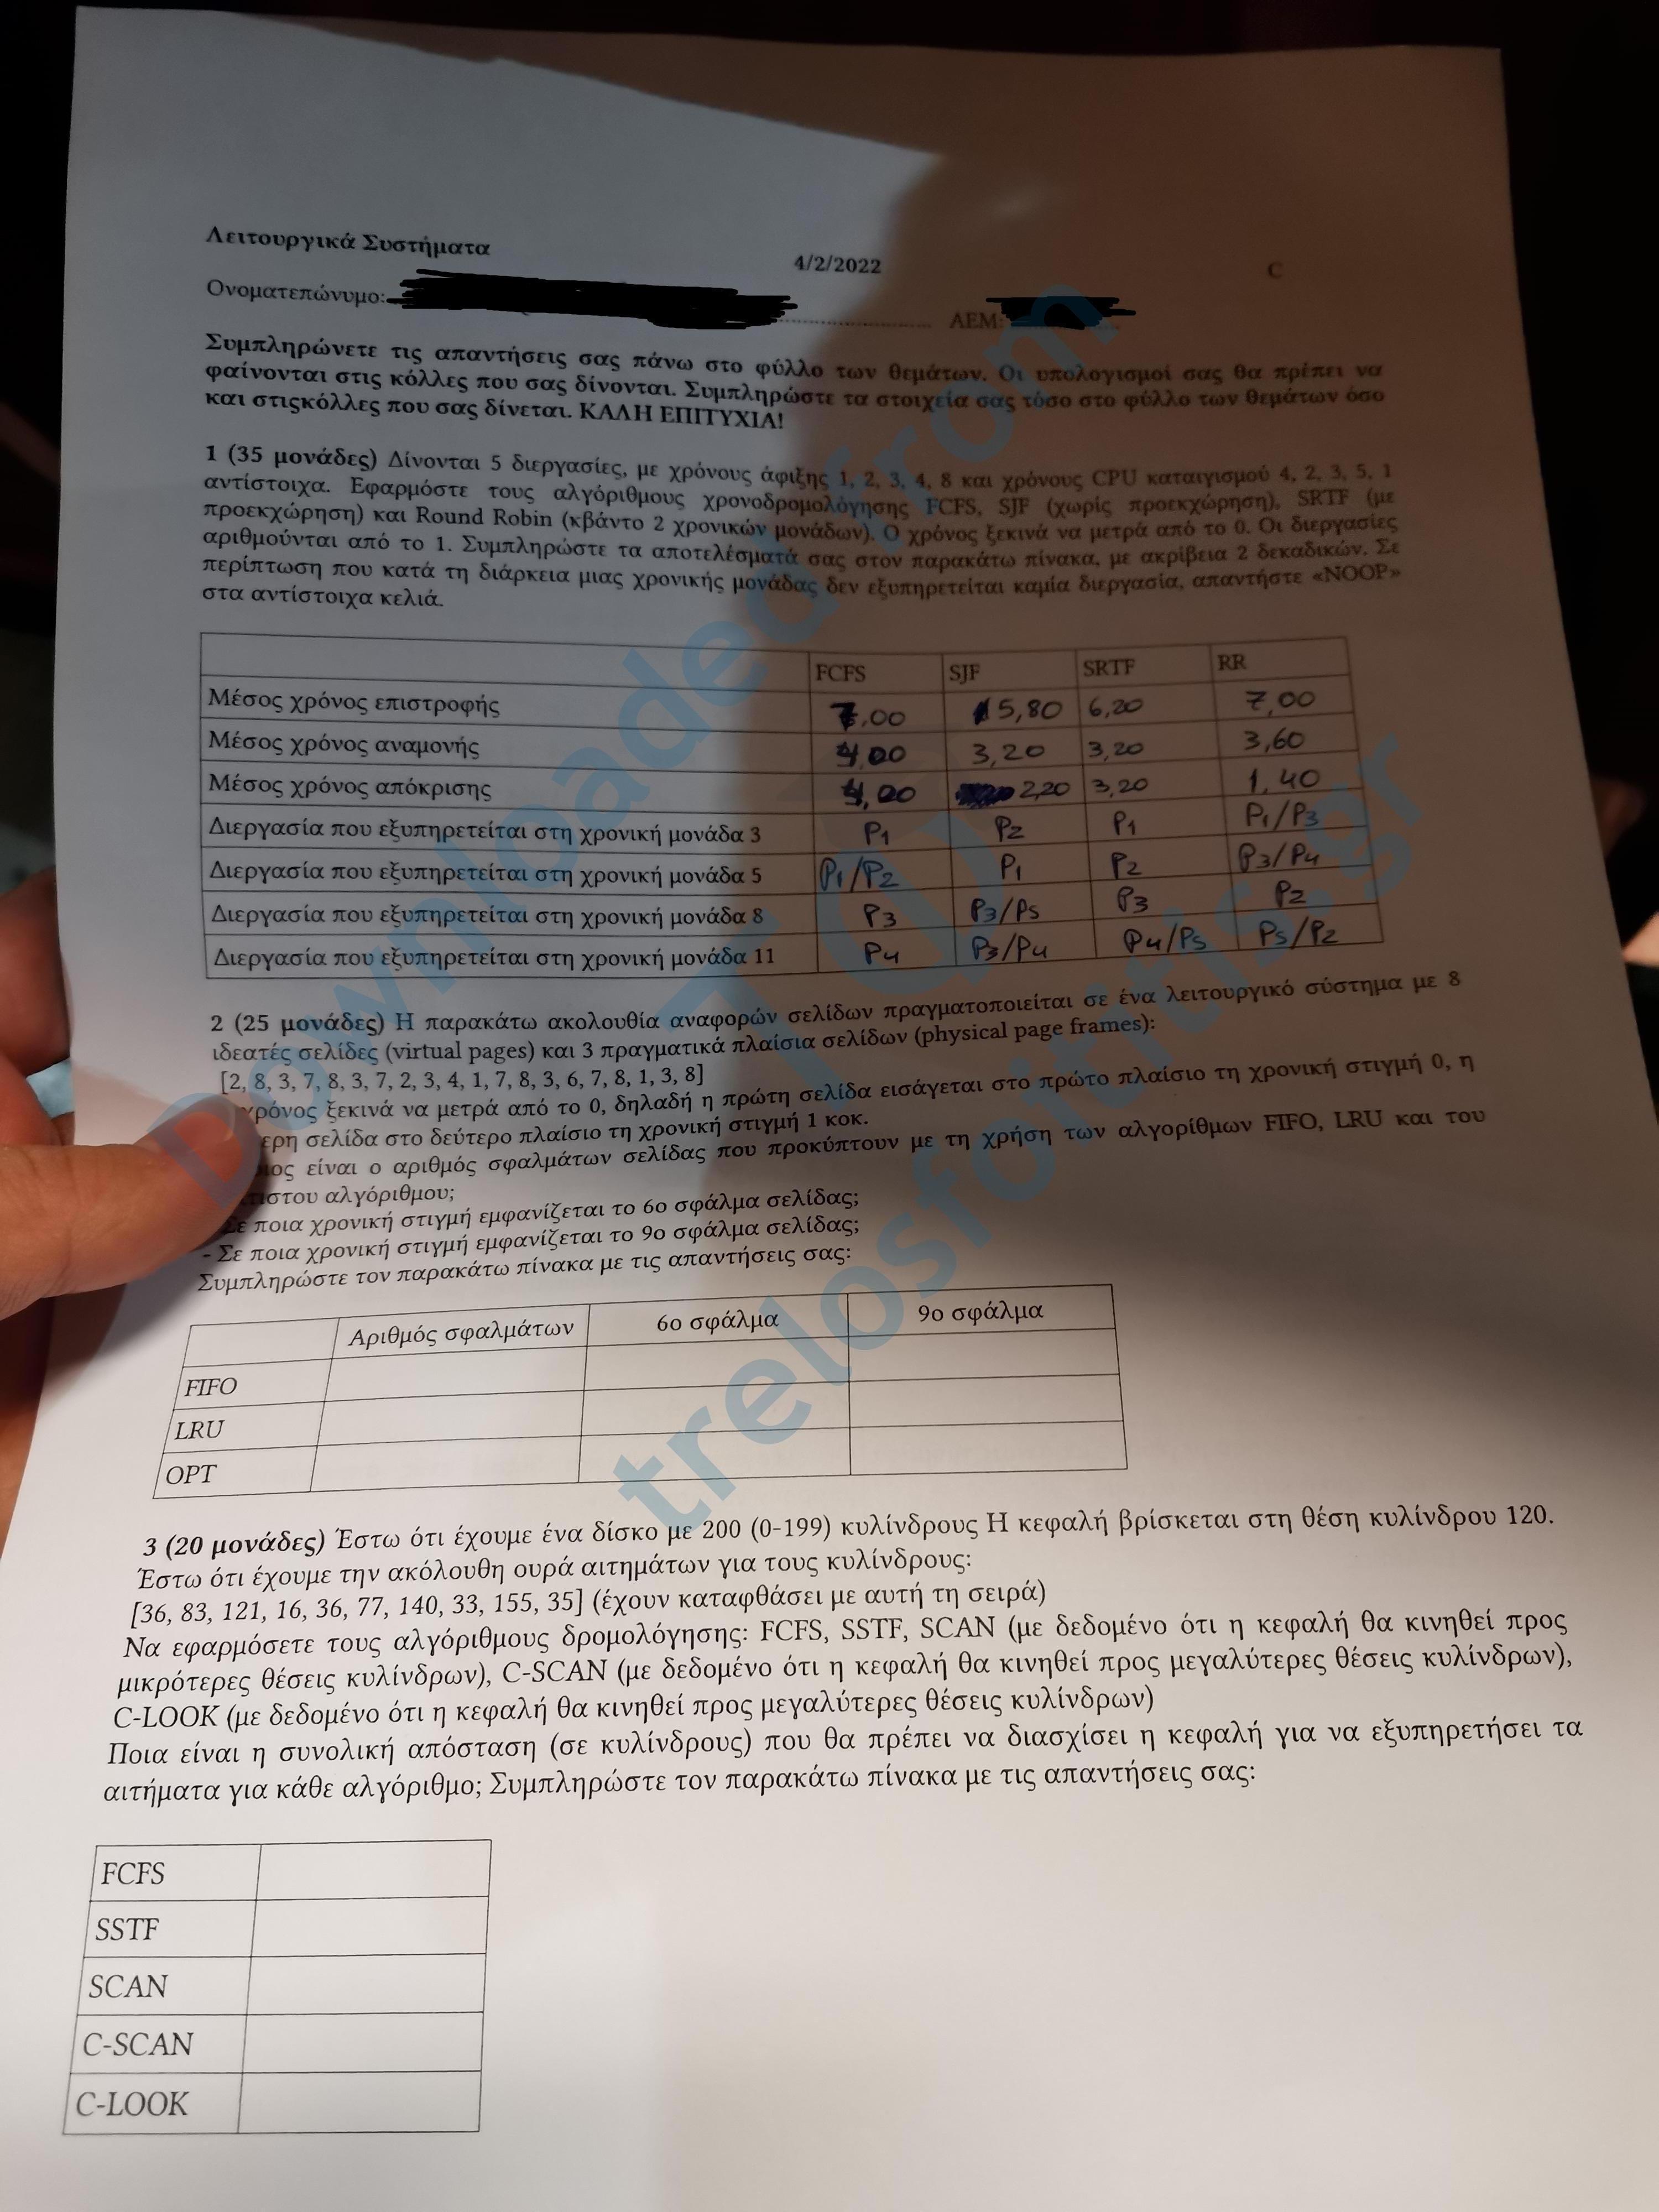 Λειτουργικά Συστήματα
4/2/2022
C
Ονοματεπώνυμο:
ΑΕΜ:
Συμπληρώνετε τις απαντήσεις σας πάνω στο φύλλο των θεμάτων. Οι υπολογισμοί σας θα πρέπει να
φαίνονται στις κόλλες που σας δίνονται. Συμπληρώστε τα στοιχεία σας τόσο στο φύλλο των θεμάτων όσο
και στιςκόλλες που σας δίνεται. ΚΑΛΗ ΕΠΙΤΥΧΙΑ!
1 (35 μονάδες) Δίνονται 5 διεργασίες, με χρόνους άφιξης 1, 2, 3, 4, 8 και χρόνους CPU καταιγισμού 4, 2, 3, 5, 1
αντίστοιχα. Εφαρμόστε τους αλγόριθμους χρονοδρομολόγησης FCFS, SJF (χωρίς προεκχώρηση), SRTF (με
προεκχώρηση) και Round Robin (κβάντο 2 χρονικών μονάδων). Ο χρόνος ξεκινά να μετρά από το 0. Οι διεργασίες
αριθμούνται από το 1. Συμπληρώστε τα αποτελέσματά σας στον παρακάτω πίνακα, με ακρίβεια 2 δεκαδικών. Σε
περίπτωση που κατά τη διάρκεια μιας χρονικής μονάδας δεν εξυπηρετείται καμία διεργασία, απαντήστε «NOOP»
στα αντίστοιχα κελιά.
FCFS SJF SRTF RR
Μέσος χρόνος επιστροφής 7,00 5,80 6,20 7,00
Μέσος χρόνος αναμονής 4,00 3,20 3,20 3,60
Μέσος χρόνος απόκρισης 4,00 2,20 3,20 1,40
Διεργασία που εξυπηρετείται στη χρονική μονάδα 3 P1 P2 P1 P1/P3
Διεργασία που εξυπηρετείται στη χρονική μονάδα 5 P1/P2 P1 P2 P3/P4
Διεργασία που εξυπηρετείται στη χρονική μονάδα 8 P3 P3/P5 P3 P2
Διεργασία που εξυπηρετείται στη χρονική μονάδα 11 P4 P3/P4 P4/P5 P5/P2
2 (25 μονάδες) Η παρακάτω ακολουθία αναφορών σελίδων πραγματοποιείται σε ένα λειτουργικό σύστημα με 8
ιδεατές σελίδες (virtual pages) και 3 πραγματικά πλαίσια σελίδων (physical page frames):
[2, 8, 3, 7, 8, 3, 7, 2, 3, 4, 1, 7, 8, 3, 6, 7, 8, 1, 3, 8]
χρόνος ξεκινά να μετρά από το 0, δηλαδή η πρώτη σελίδα εισάγεται στο πρώτο πλαίσιο τη χρονική στιγμή 0, η
σελίδα στο δεύτερο πλαίσιο τη χρονική στιγμή 1 κοκ.
είναι ο αριθμός σφαλμάτων σελίδας που προκύπτουν με τη χρήση των αλγορίθμων FIFO, LRU και του
αλγόριθμου;
Σε ποια χρονική στιγμή εμφανίζεται το 6ο σφάλμα σελίδας;
- Σε ποια χρονική στιγμή εμφανίζεται το 9ο σφάλμα σελίδας;
Συμπληρώστε τον παρακάτω πίνακα με τις απαντήσεις σας:
Αριθμός σφαλμάτων 6ο σφάλμα 9ο σφάλμα
FIFO
LRU
OPT
3 (20 μονάδες) Έστω ότι έχουμε ένα δίσκο με 200 (0-199) κυλίνδρους Η κεφαλή βρίσκεται στη θέση κυλίνδρου 120.
Έστω ότι έχουμε την ακόλουθη ουρά αιτημάτων για τους κυλίνδρους:
[36, 83, 121, 16, 36, 77, 140, 33, 155, 35] (έχουν καταφθάσει με αυτή τη σειρά)
Να εφαρμόσετε τους αλγόριθμους δρομολόγησης: FCFS, SSTF, SCAN (με δεδομένο ότι η κεφαλή θα κινηθεί προς
μικρότερες θέσεις κυλίνδρων), C-SCAN (με δεδομένο ότι η κεφαλή θα κινηθεί προς μεγαλύτερες θέσεις κυλίνδρων),
C-LOOK (με δεδομένο ότι η κεφαλή θα κινηθεί προς μεγαλύτερες θέσεις κυλίνδρων)
Ποια είναι η συνολική απόσταση (σε κυλίνδρους) που θα πρέπει να διασχίσει η κεφαλή για να εξυπηρετήσει τα
αιτήματα για κάθε αλγόριθμο; Συμπληρώστε τον παρακάτω πίνακα με τις απαντήσεις σας:
FCFS
SSTF
SCAN
C-SCAN
C-LOOK
Downloaded from
trelosfoititis.gr